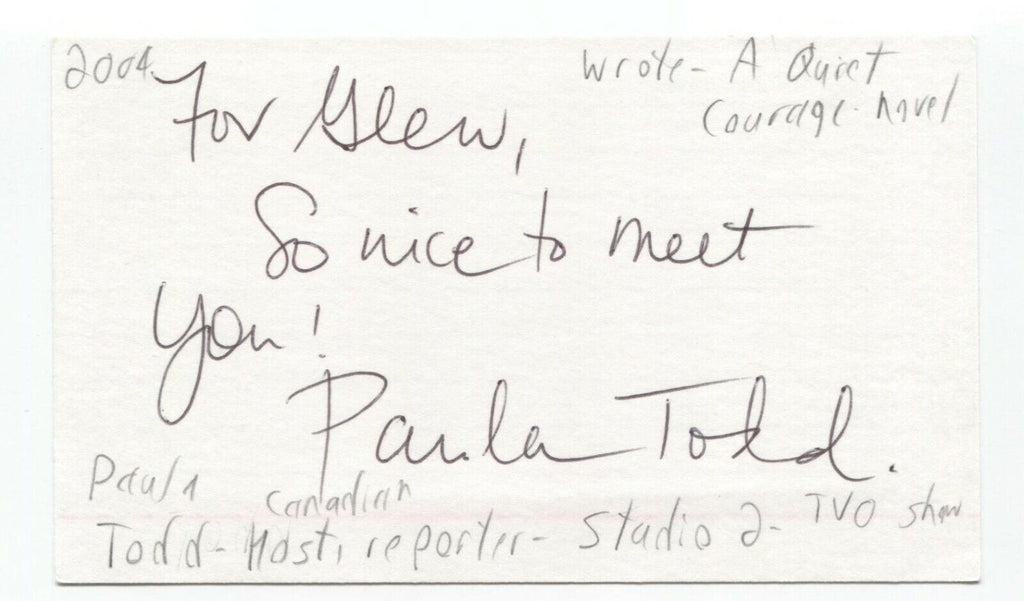 2004.
wrote- A Quiet
Courage- novel
For Glenn,
So nice to meet
you!
Paula Todd.
Paula canadian
Todd- Host, reporter- Studio 2- TVO show